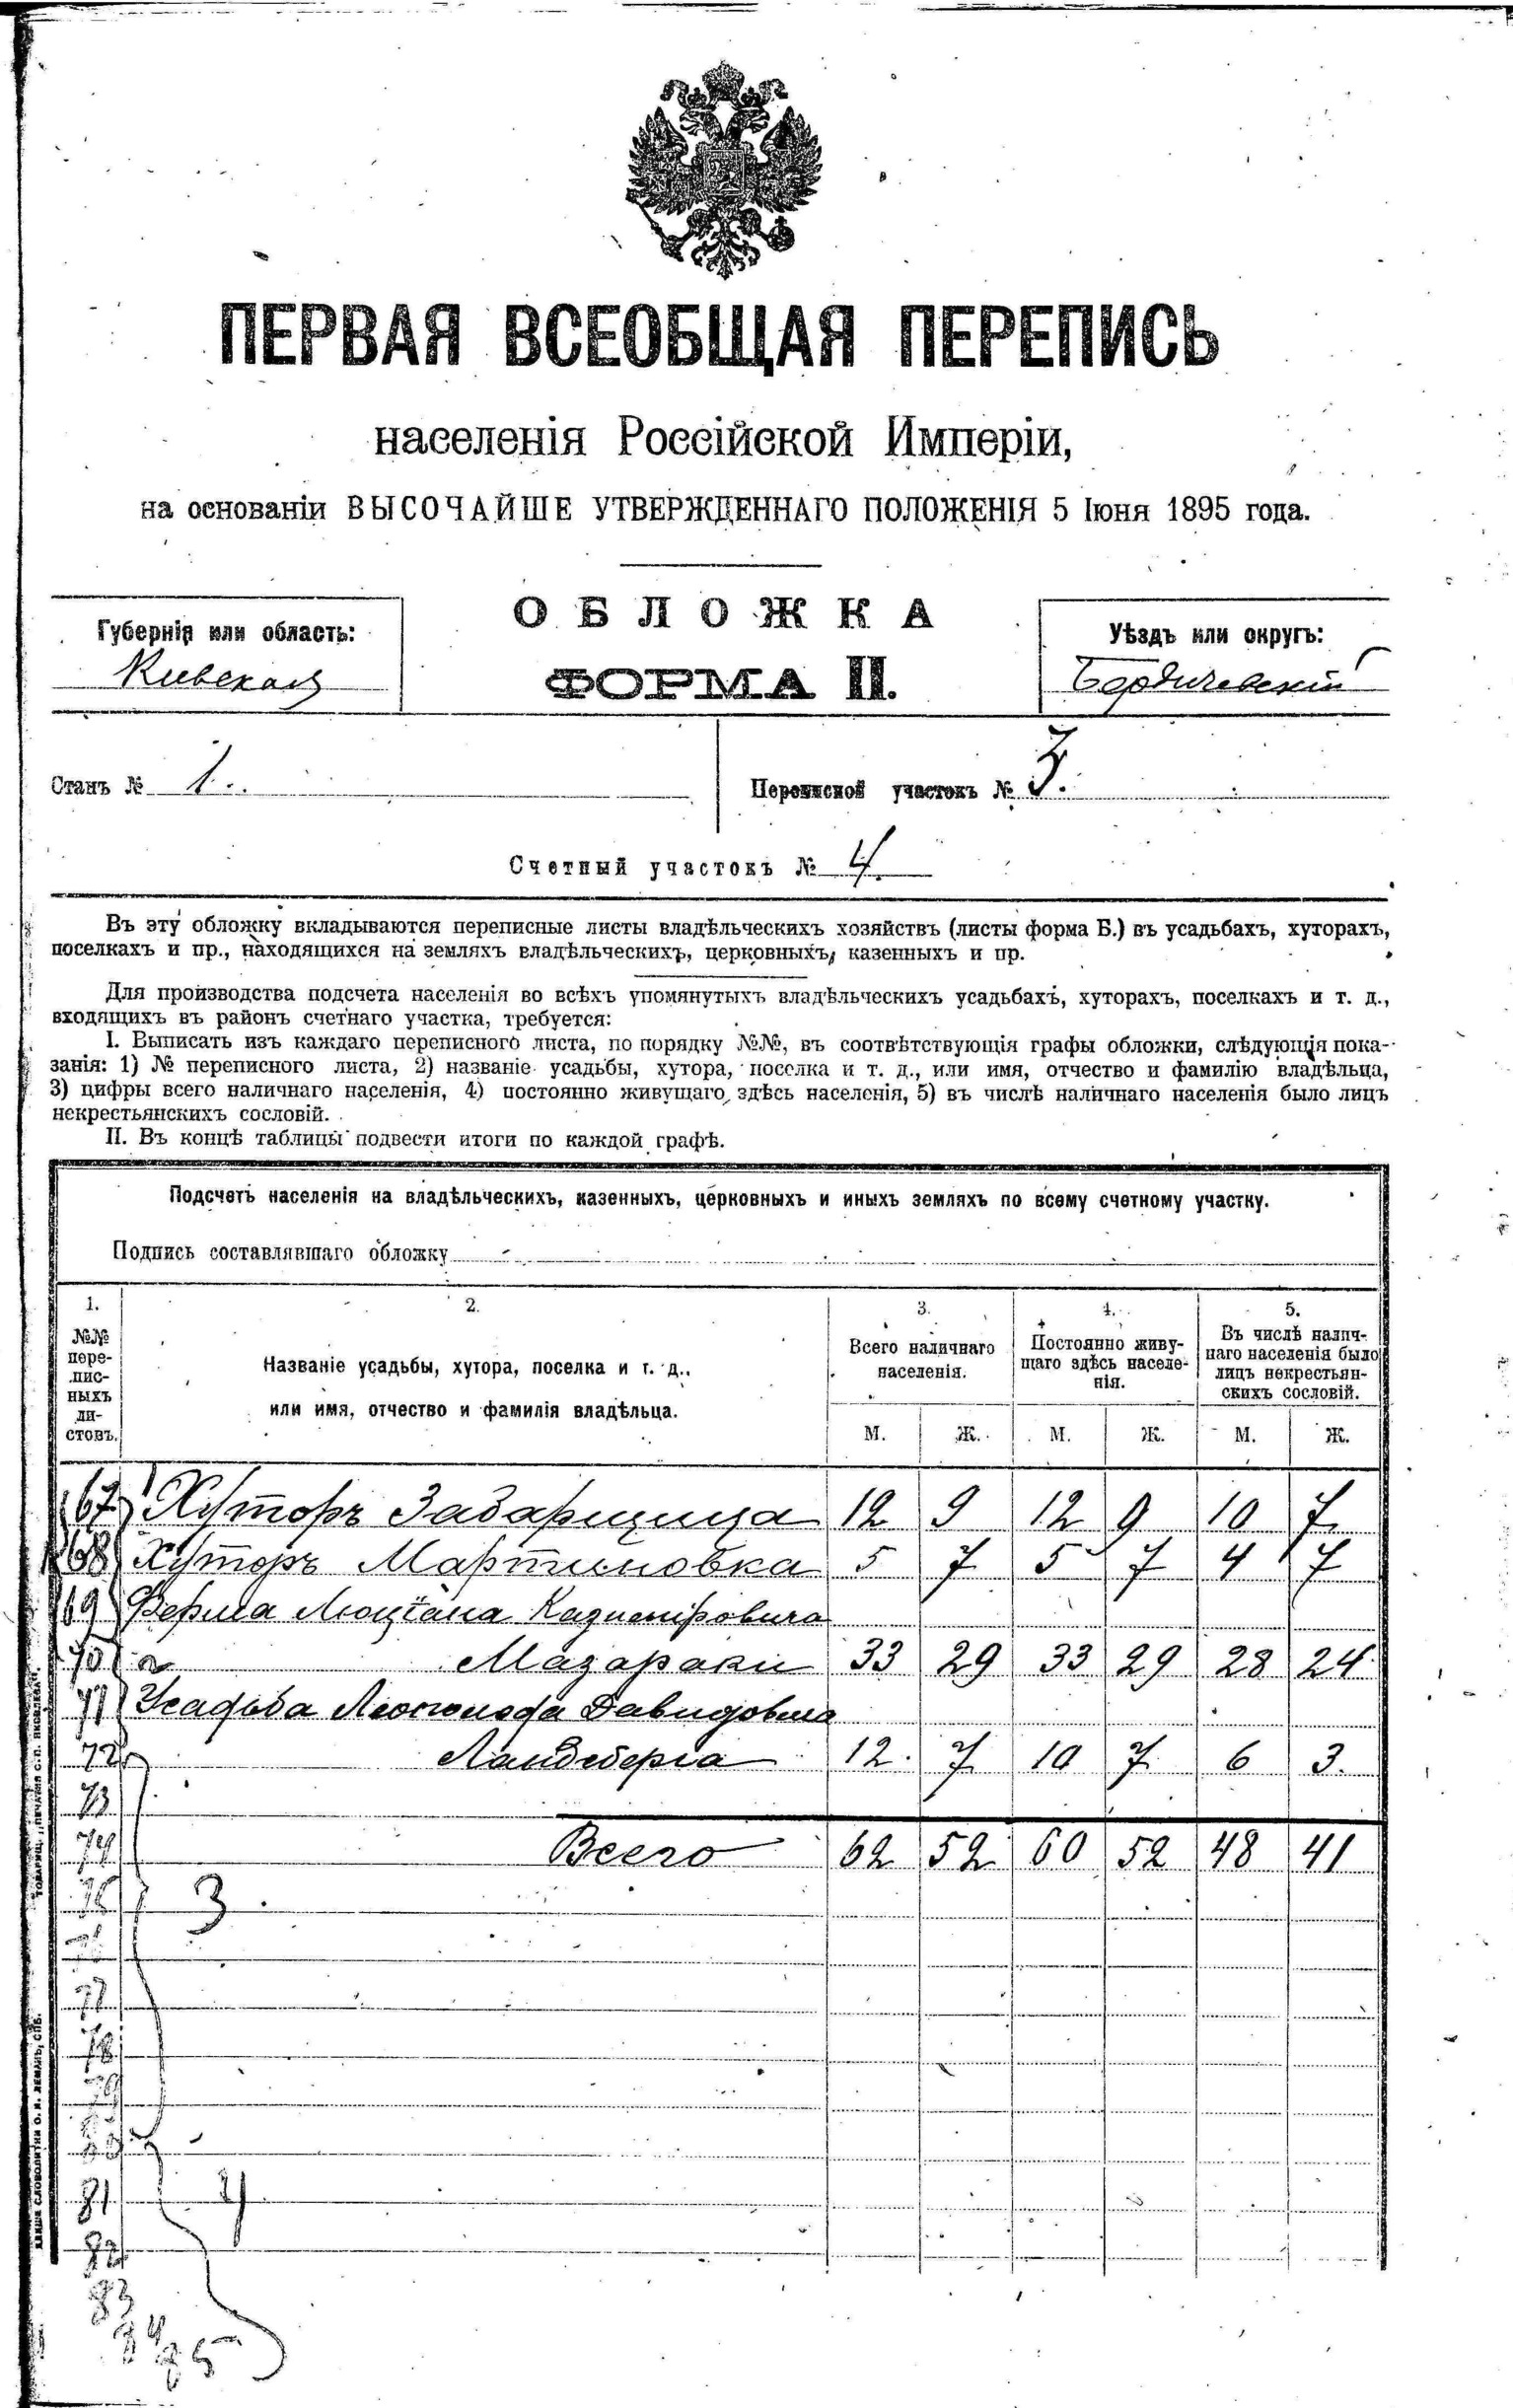 ПЕРВАЯ ВСЕОБЩАЯ ПЕРЕПИСЬ
населенія Россійской Имперіи,
на основаніи ВЫСОЧАЙШЕ УТВЕРЖДЕННАГО ПОЛОЖЕНІЯ 5 Іюня 1895 года.
Губернія или область:
Кіевская
ОБЛОЖКА
ФОРМА II.
Уѣздъ или округъ:
Бердичевскій
Станъ № 1.
Переписной участокъ № 3.
Счетный участокъ № 4.
Въ эту обложку вкладываются переписные листы владѣльческихъ хозяйствъ (листы форма Б.) въ усадьбахъ, хуторахъ,
поселкахъ и пр., находящихся на земляхъ владѣльческихъ, церковныхъ, казенныхъ и пр.
Для производства подсчета населенія во всѣхъ упомянутыхъ владѣльческихъ усадьбахъ, хуторахъ, поселкахъ и т. д.,
входящихъ въ районъ счетнаго участка, требуется:
I. Выписать изъ каждаго переписного листа, по порядку №№, въ соотвѣтствующія графы обложки, слѣдующія пока-
занія: 1) № переписного листа, 2) названіе усадьбы, хутора, поселка и т. д., или имя, отчество и фамилію владѣльца,
3) цифры всего наличнаго населенія, 4) постоянно живущаго здѣсь населенія, 5) въ числѣ наличнаго населенія было лицъ
некрестьянскихъ сословій.
II. Въ концѣ таблицы подвести итоги по каждой графѣ.
Подсчетъ населенія на владѣльческихъ, казенныхъ, церковныхъ и иныхъ земляхъ по всему счетному участку.
Подпись составлявшаго обложку
1.
№№ пере-
пис-
ныхъ
ли-
стовъ.
2.
Названіе усадьбы, хутора, поселка и т. д.,
или имя, отчество и фамилія владѣльца.
3.
Всего наличнаго
населенія.
4.
Постоянно живу-
щаго здѣсь населе-
нія.
5.
Въ числѣ налич-
наго населенія было
лицъ некрестьян-
скихъ сословій.
М. Ж. М. Ж. М. Ж.
67 Хуторъ Забарщица 12 9 12 9 10 7
68 Хуторъ Мартиновка 5 7 5 7 4 7
69 Ферма Люціана Казиміровича
70 Мазараки 33 29 33 29 28 24
71 Усадьба Леопольда Давидовича
72 Ландсберга 12 7 10 7 6 3
73
74 Всего 62 52 60 52 48 41
75 3
76
77
78
79
80
81 4
82
83
84
85
ТОВАРИЩ. „ПЕЧАТНЯ С. П. ЯКОВЛЕВА".
КЛИШЕ СЛОВОЛИТНИ О. И. ЛЕМАНЪ, СПБ.